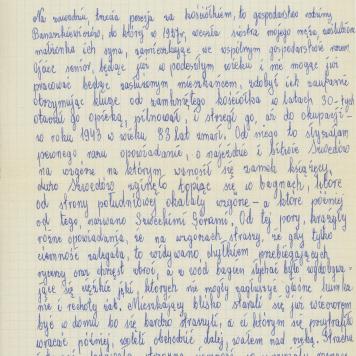 Na zawodziu, trzecia posesja za kościółkiem, to gospodarstwo rodziny
Banaszkiewiczów, do której w 1927r, weszła siostra mojego męża, zaślubiona
małżonka ich syna, zamieszkując we wspólnym gospodarstwie razem.
Ojciec senior, będąc już w podeszłym wieku i nie mogąc już
pracować będąc zasłużonym mieszkańcem, zdobył ich zaufanie
otrzymując klucze od zamkniętego kościółka w latach 30-tych
otoczył go opieką, pilnował, i strzegł go, aż do okupacji –
w roku 1943 w wieku 83 lat zmarł. Od niego to słyszałam
pewnego razu opowiadanie, o najeździe i bitwie Szwedów
na wzgórze na którym wznosił się zamek książęcy,
dużo Szwedów zginęło topiąc się w bagnach, które
od strony południowej okalały wzgórze – a które później
od tego, nazwano Szweckimi Górami. Od tej pory, krążyły
różne opowiadania, że na wzgórzach straszy, że gdy tylko
ciemność zalegała, to widywano chyłkiem przebiegających
rycerzy oraz chrzęst zbroi, a z wód bagien słychać było wydobywa-
jące się ciężkie jęki, których nie mogły zagłuszyć głośne kumka-
nie i rechoty żab. Mieszkający blisko starali się już wieczorem
być w domu bo się bardzo straszyli, a ci którym się przytrafiło
wracać później, woleli obchodzić dalej, wałem nad rzeką. Stracha